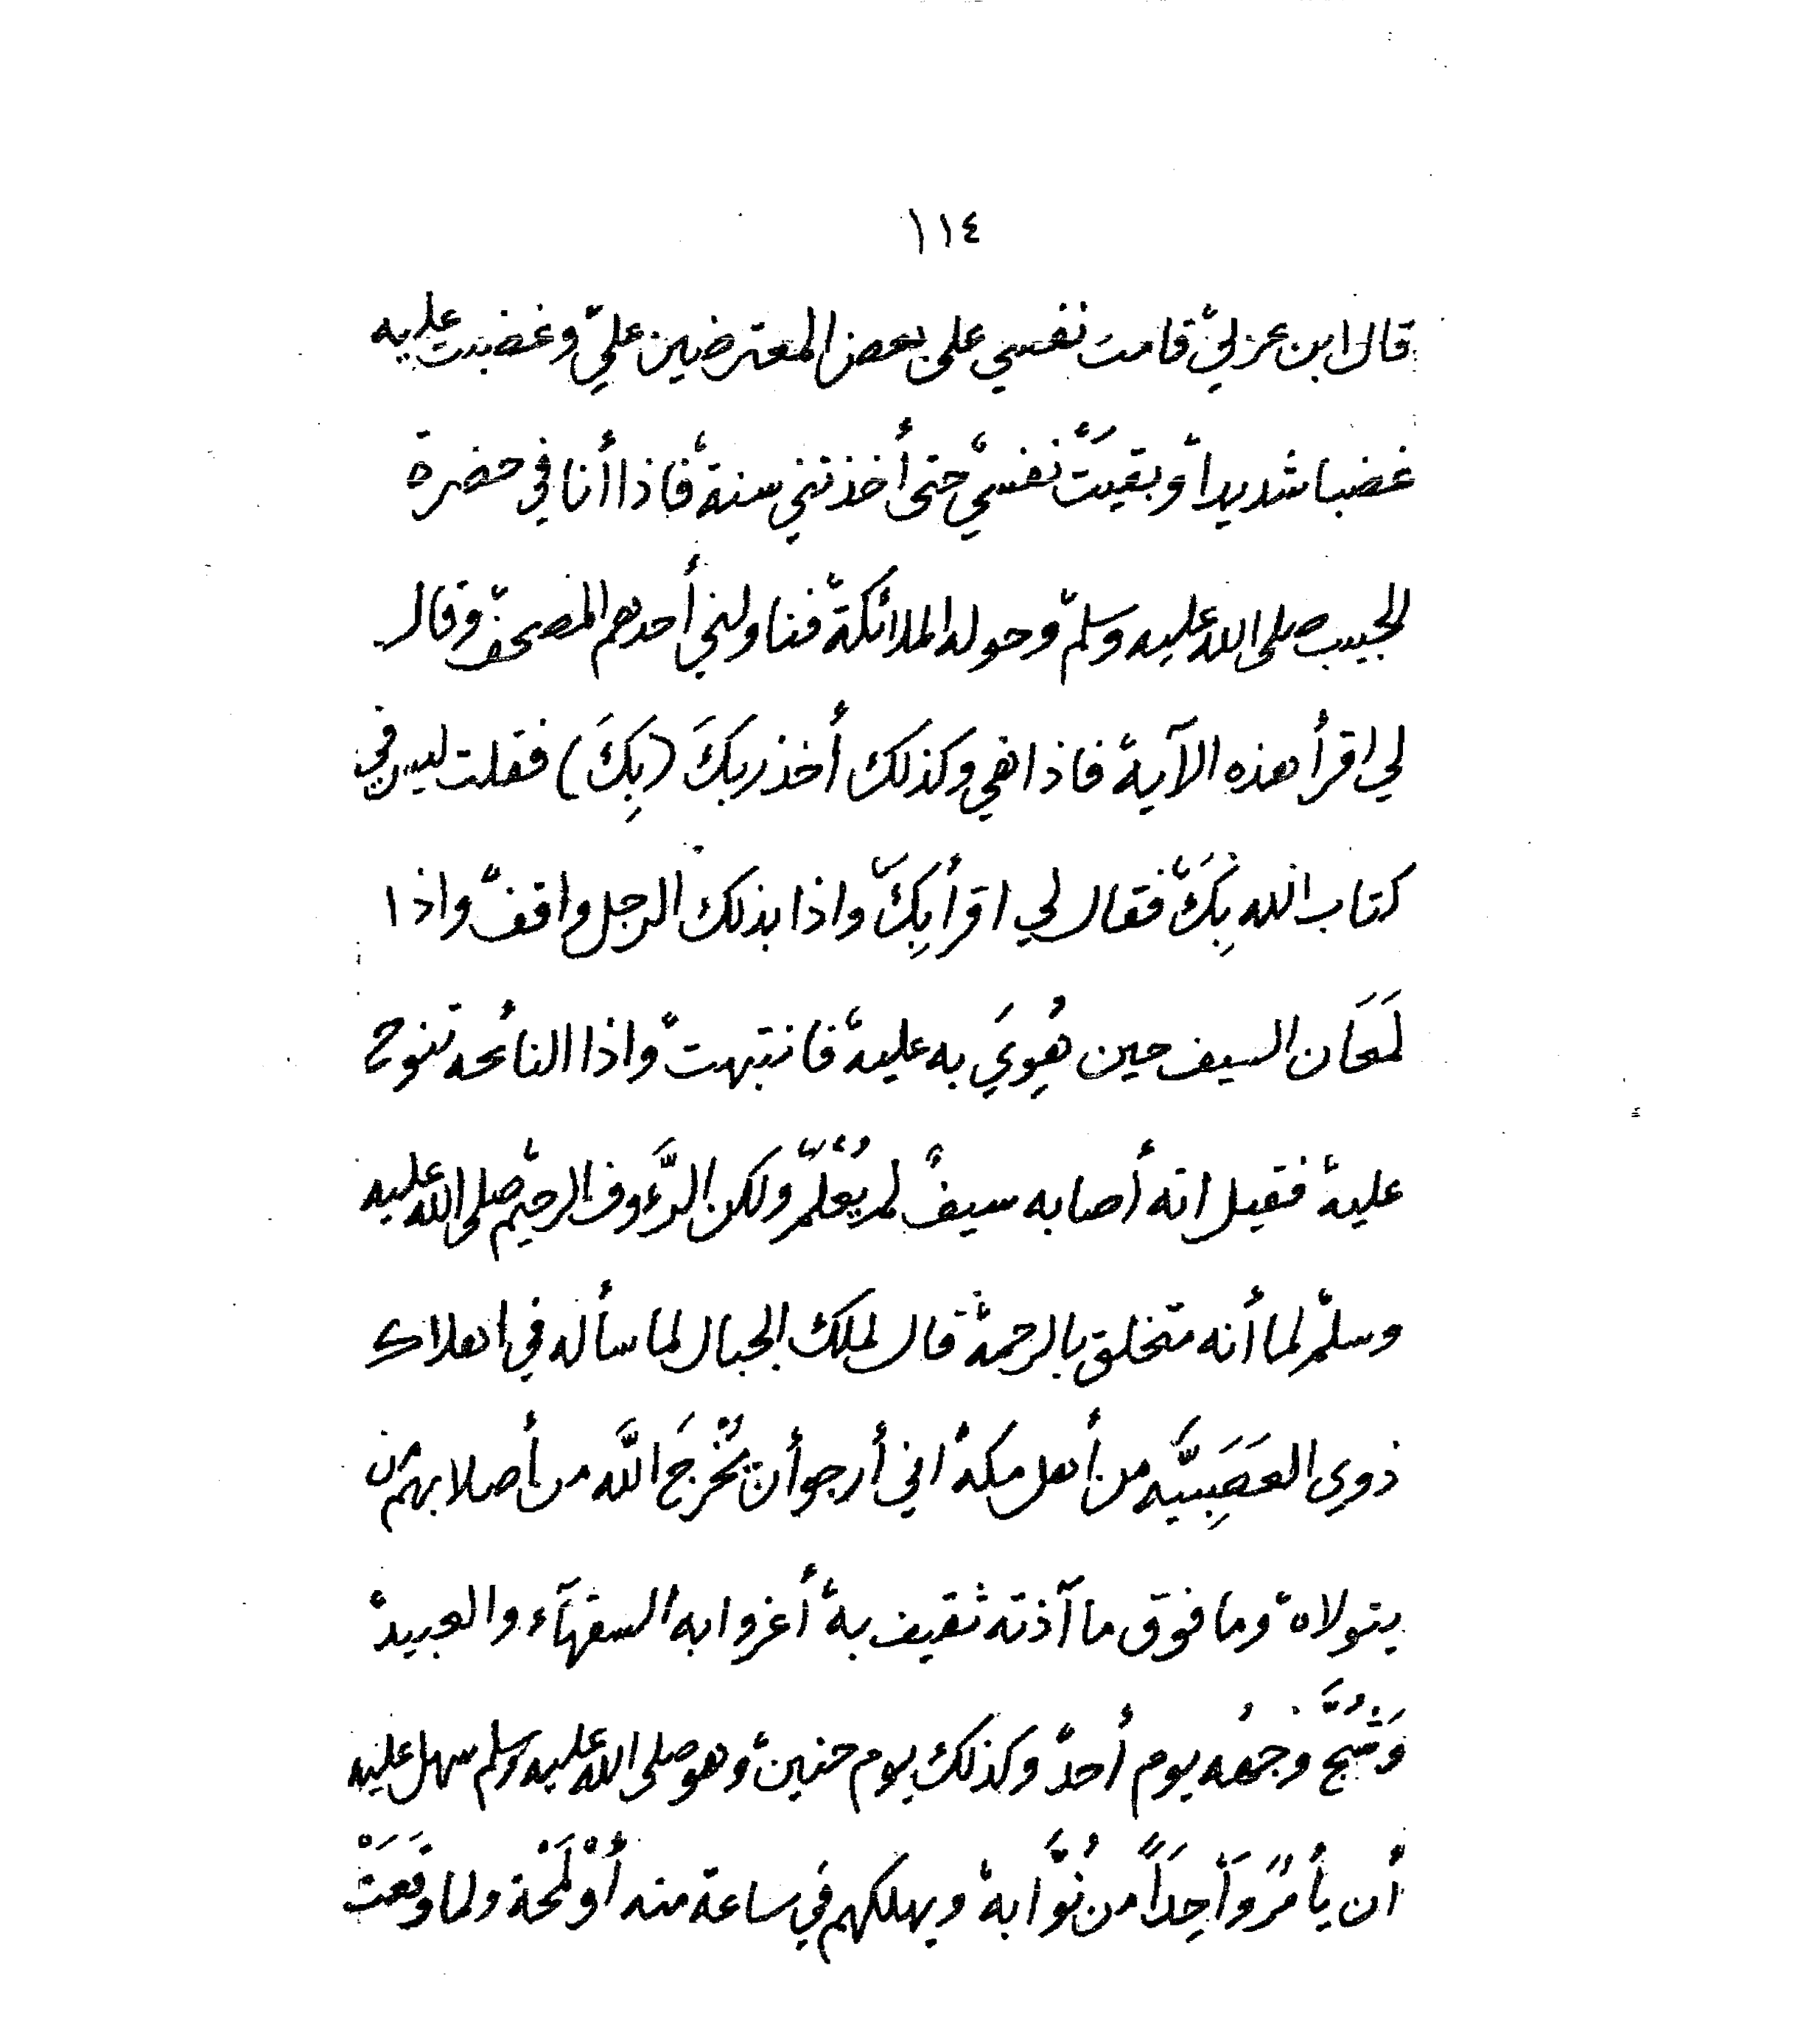 ١١٤
قال ابن عزليّ قامت نفسي على بعض المعترضين عليّ وغضبت عليه
غضبا شديداً وبقيَتْ نفسي حتى أخذتني سنة فاذا أنا في حضرة
الحبيب صلى الله عليه وسلم وحوله الملائكة فناولني أحدهم المصحف وقال
لي اقرأ هذه الآية فاذا هي وكذلك أخذ ربكَ (بِكَ) فقلت ليس في
كتاب الله بِكَ فقال لي اقرأ بِكَ واذا بذلك الرجل واقف واذا
لَمَعَان السيف حين هُوِيَ به عليه فانتبهت واذا النائحه تنوح
عليه فقيل انه أصابه سيفٌ لم يُعْلَمْ ولكن الرَّءوف الرحيم صلى الله عليه
وسلم لما أنه متخلق بالرحمة قال لملك الجبال لما سأله في اهلاك
ذوى العَصَبِيَّه من أهل مكة اني أرجو أن يُخْرِجَ اللَّه من أصلابهم من
يتولاه وما فوق ما آذته ثقيف به أغروا به السفهآء والعبيد
وَشُجَّ وجهُه يوم أُحد وكذلك يوم حنين وهو صلى الله عليه وسلم سهل عليه
أن يأمرَ وَاحِدَاً من نُوَّابه ويهلكهم في ساعة منه أوْ لَمْحة ولما وقَعَتْ